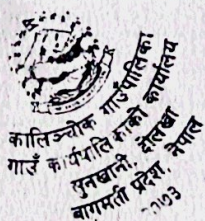 कालिञ्चोक गाउँपालिका
गाउँ कार्यपालिकाको कार्यालय
सुनखानी, दोलखा
बागमती प्रदेश, नेपाल
२०७३